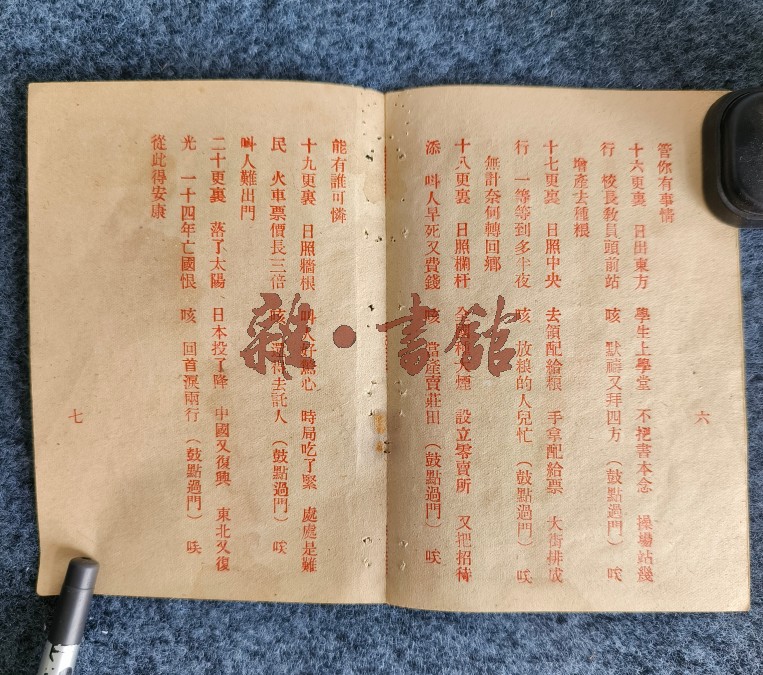 管你有事情
十六更裏 日出東方 學生上學堂 不把書本念 操場站幾
行 校長敎員頭前站 咳 默禱又拜四方 (鼓點過門) 咳
增產去種粮
十七更裏 日照中央 去領配給粮 手拿配給票 大街排成
行 一等等到多半夜 咳 放粮的人兒忙 (鼓點過門) 咳
無計奈何轉回鄉
十八更裏 日照欄杆 種大煙 設立零賣所 又把招待
添 叫人早死又費錢 咳 當產賣莊田 (鼓點過門) 咳
六
能有誰可憐
十九更裏 日照牆根 叫人好 心 時局吃了緊 處處是難
民 火車票價長三倍 咳 還得去託人 (鼓點過門) 咳
叫人難出門
二十更裏 落了太陽 日本投了降 中國又復興 東北又復
光 一十四年亡國恨 咳 回首淚兩行 (鼓點過門) 咳
從此得安康
七
雜·書舘